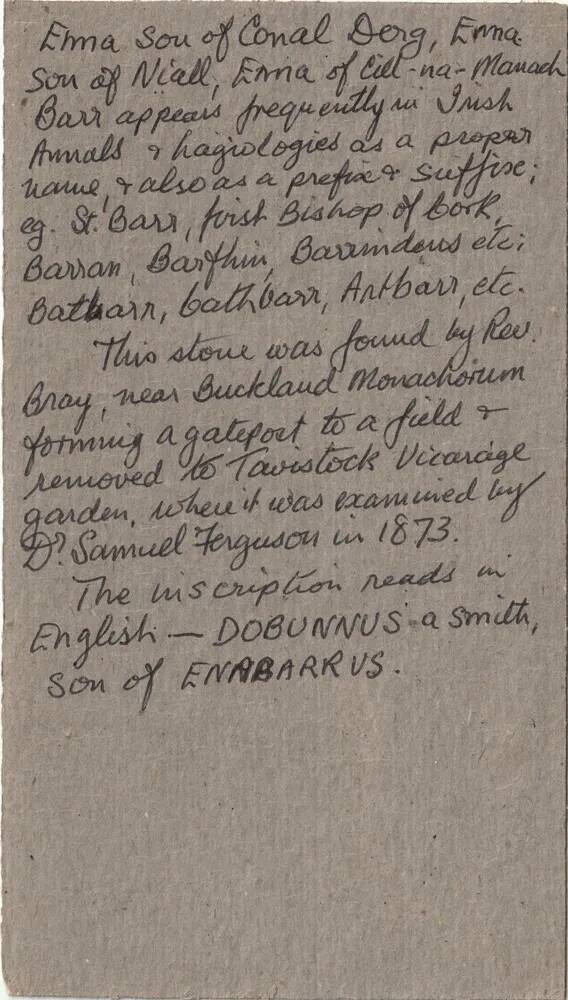 Enna Son of Conal Derg, Enna
Son of Niall, Enna of Cill-na-Manach
Barr appears frequently in Irish
Annals & hagiologies as a proper
name, & also as a prefix & suffixe;
eg. St. Barr, first Bishop of Cork,
Barran, Barfhin, Barrindeus etc;
Batbarr, Cathbarr, Artbarr, etc.
This stone was found by Rev.
Bray, near Buckland Monachorum
forming a gatepost to a field &
removed to Tavistock Vicarage
garden, where it was examined by
Dr. Samuel Ferguson in 1873.
The inscription reads in
English — DOBUNNUS a Smith,
Son of ENABARRUS.